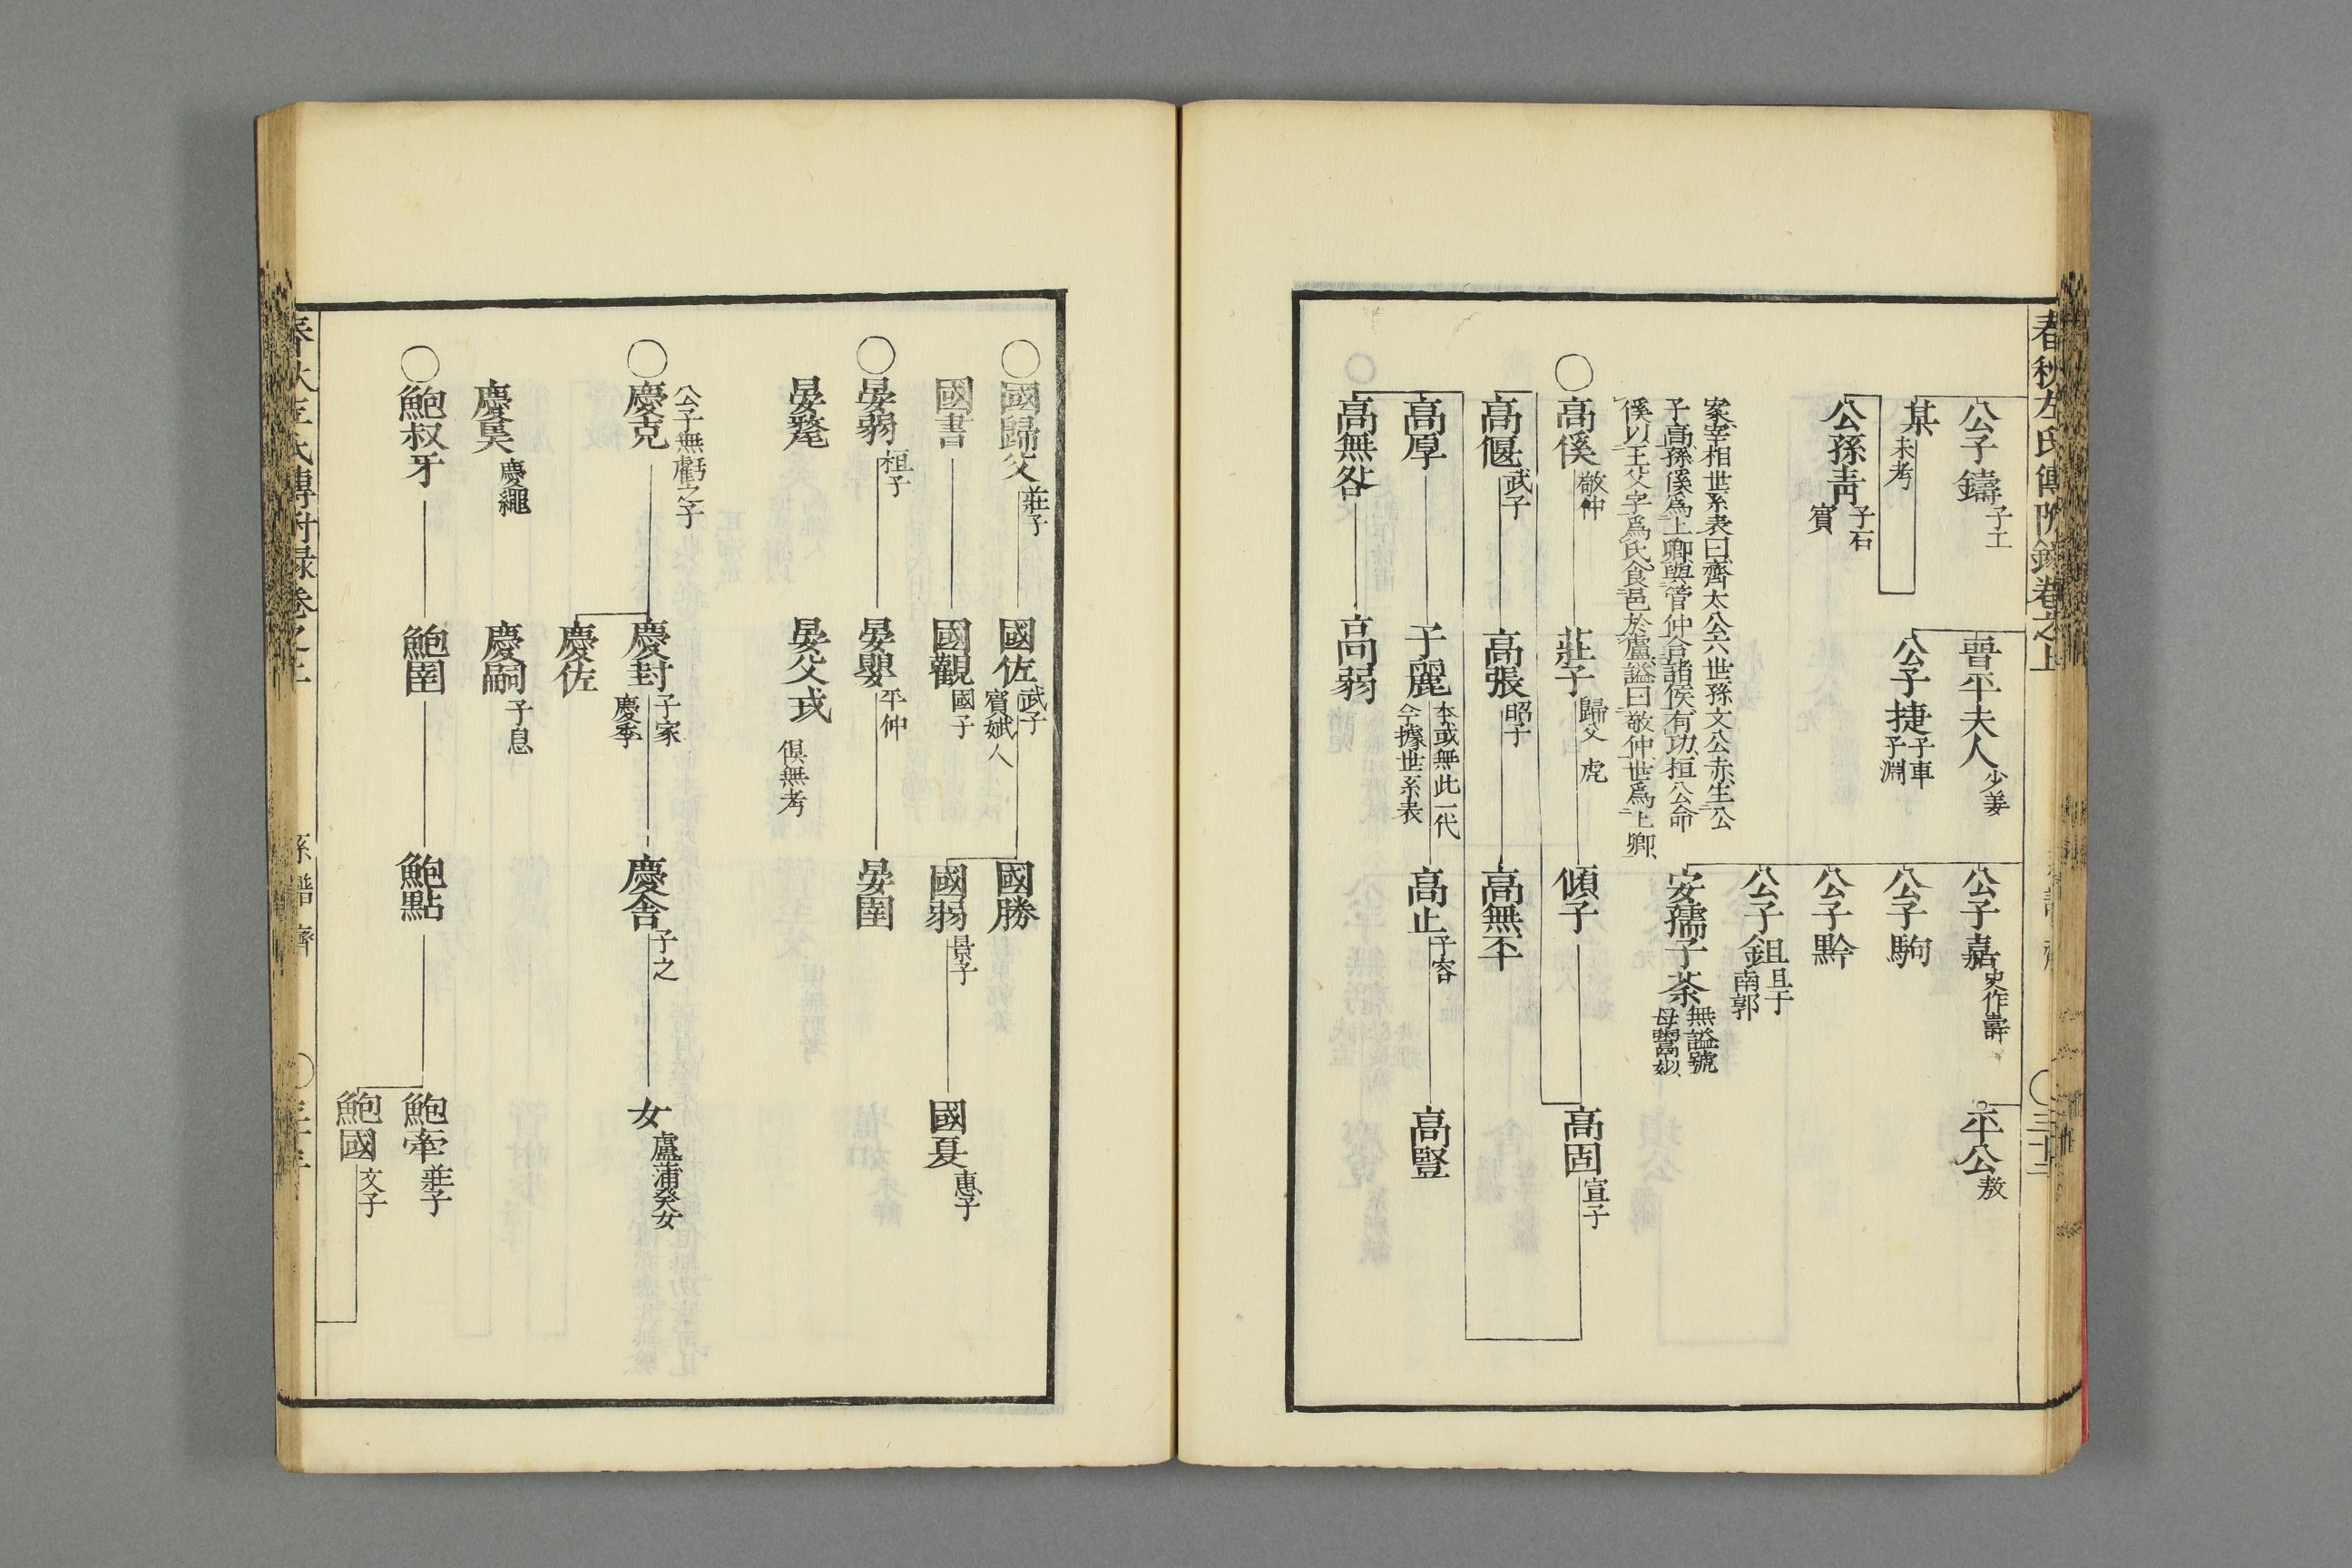 春秋左氏傳附錄卷之上
公子鑄 子工
某 未考
公孫青 子石 賓
晋平夫人 少姜
公子捷 子車 子淵
公子嘉 史作壽
公子駒
公子黔
公子鉏 且于 南郭
安孺子荼 無謚號 母鬻姒
平公 敖
案宰相世系表曰齊太公六世孫文公赤生公
子高孫傒爲上卿與管仲合諸侯有功桓公命
傒以王父字爲氏食邑於盧謚曰敬仲世爲上卿
〇高傒 敬仲
莊子 歸父 虎
傾子
高固 宣子
高偃 武子
高張 昭子
高無㔻
高厚
子麗 本或無此一代 今據世系表
高止 子容
高豎
高無咎
高弱
〇國歸父 莊子
國佐 武子 賓媚人
國勝
國弱 景子
國夏 惠子
國書
國觀 國子
〇晏弱 桓子
晏嬰 平仲
晏圉
晏氂
晏父戎 俱無考
公子無虧之子
〇慶克
慶封 子家 慶季
慶舍 子之
女 盧蒲癸女
慶佐
慶奊 慶繩
慶嗣 子息
〇鮑叔牙
鮑圉
鮑點
鮑牽 莊子
鮑國 文子
系譜 齊